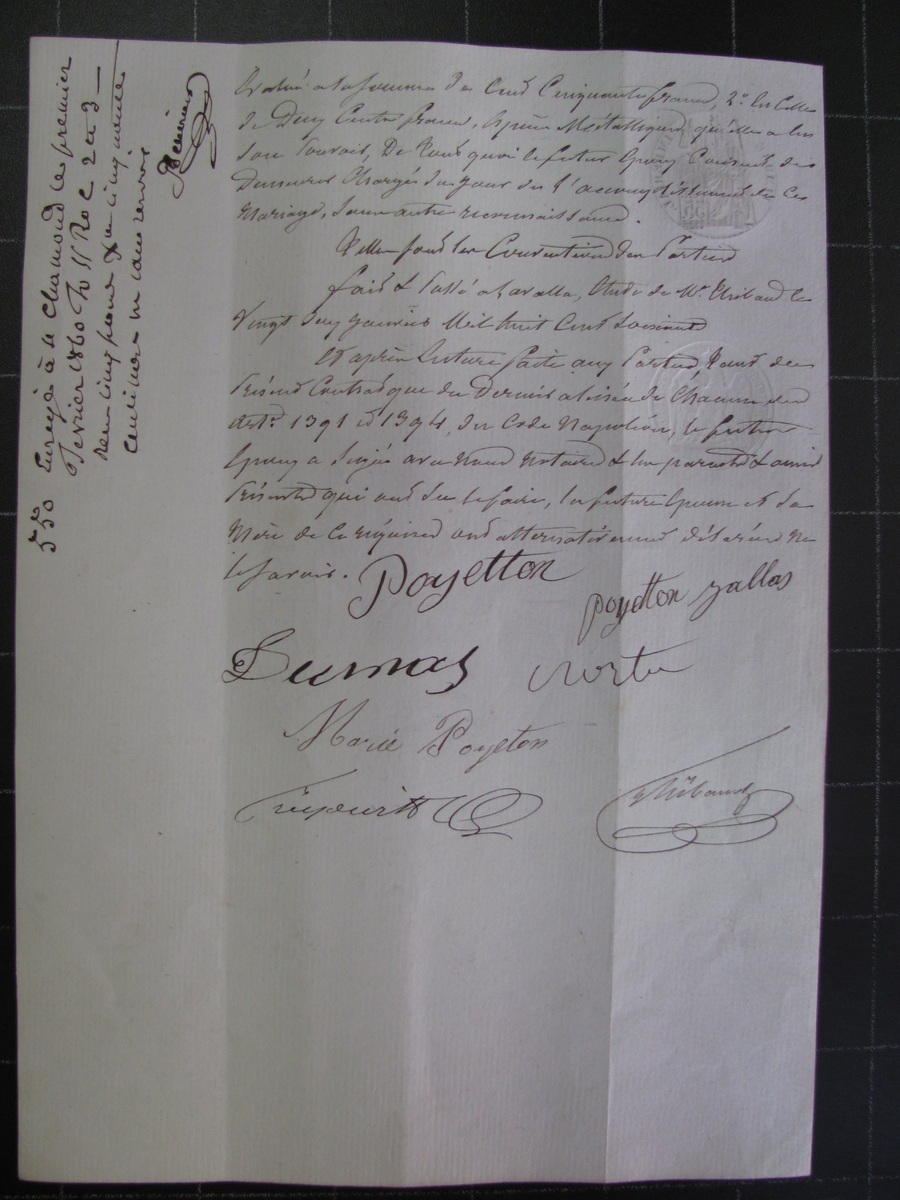 Evalué à la somme de Cent Cinquante francs, 2° En Celle
de Deux Cents francs, Espèces Métalliques, qu'elle a les
son travail, De tout quoi le futur Epoux Consent de
Demeurer Chargé du jour de l'accomplissement de ce
Mariage, sans autre reconnaissance.
Telles sont les Conventions des Parties
fait & passé à Lavalla, Etude de Me Thibaud le
Vingt deux janvier Mil huit Cent Soixante
Et après lecture faite aux Parties, tant du
Présent Contrat que du Dernier alinéa de Chacun des
Arts 1391 et 1394, du Code Napoléon, le futur
Epoux a Signé avec Nous Notaire & les parents & amis
Présents qui ont su le faire, la future Epouse et sa
Mère de ce requises ont alternativement déclaré ne
le savoir.
Poyetton
poyetton gallas
Dumas
Marie Poyeton
Thibaud
550
Enregé à St Chamond le premier
février 1860 fo 11 Ro C 2 et 3